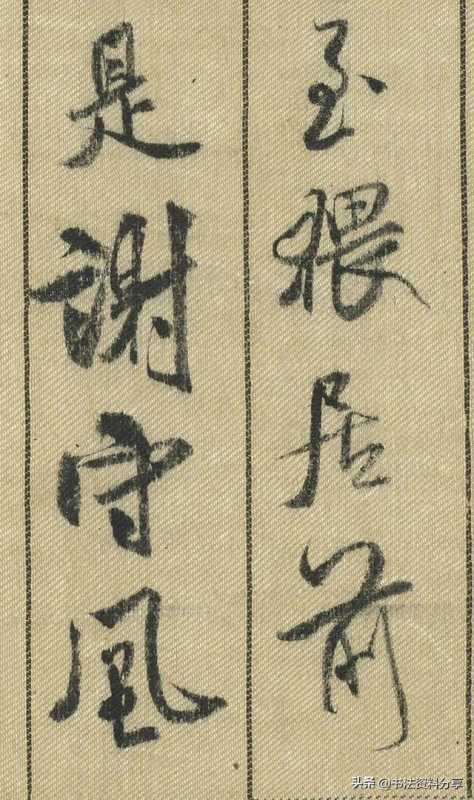 至猥居前
是謝守風
头条 @书法资料分享